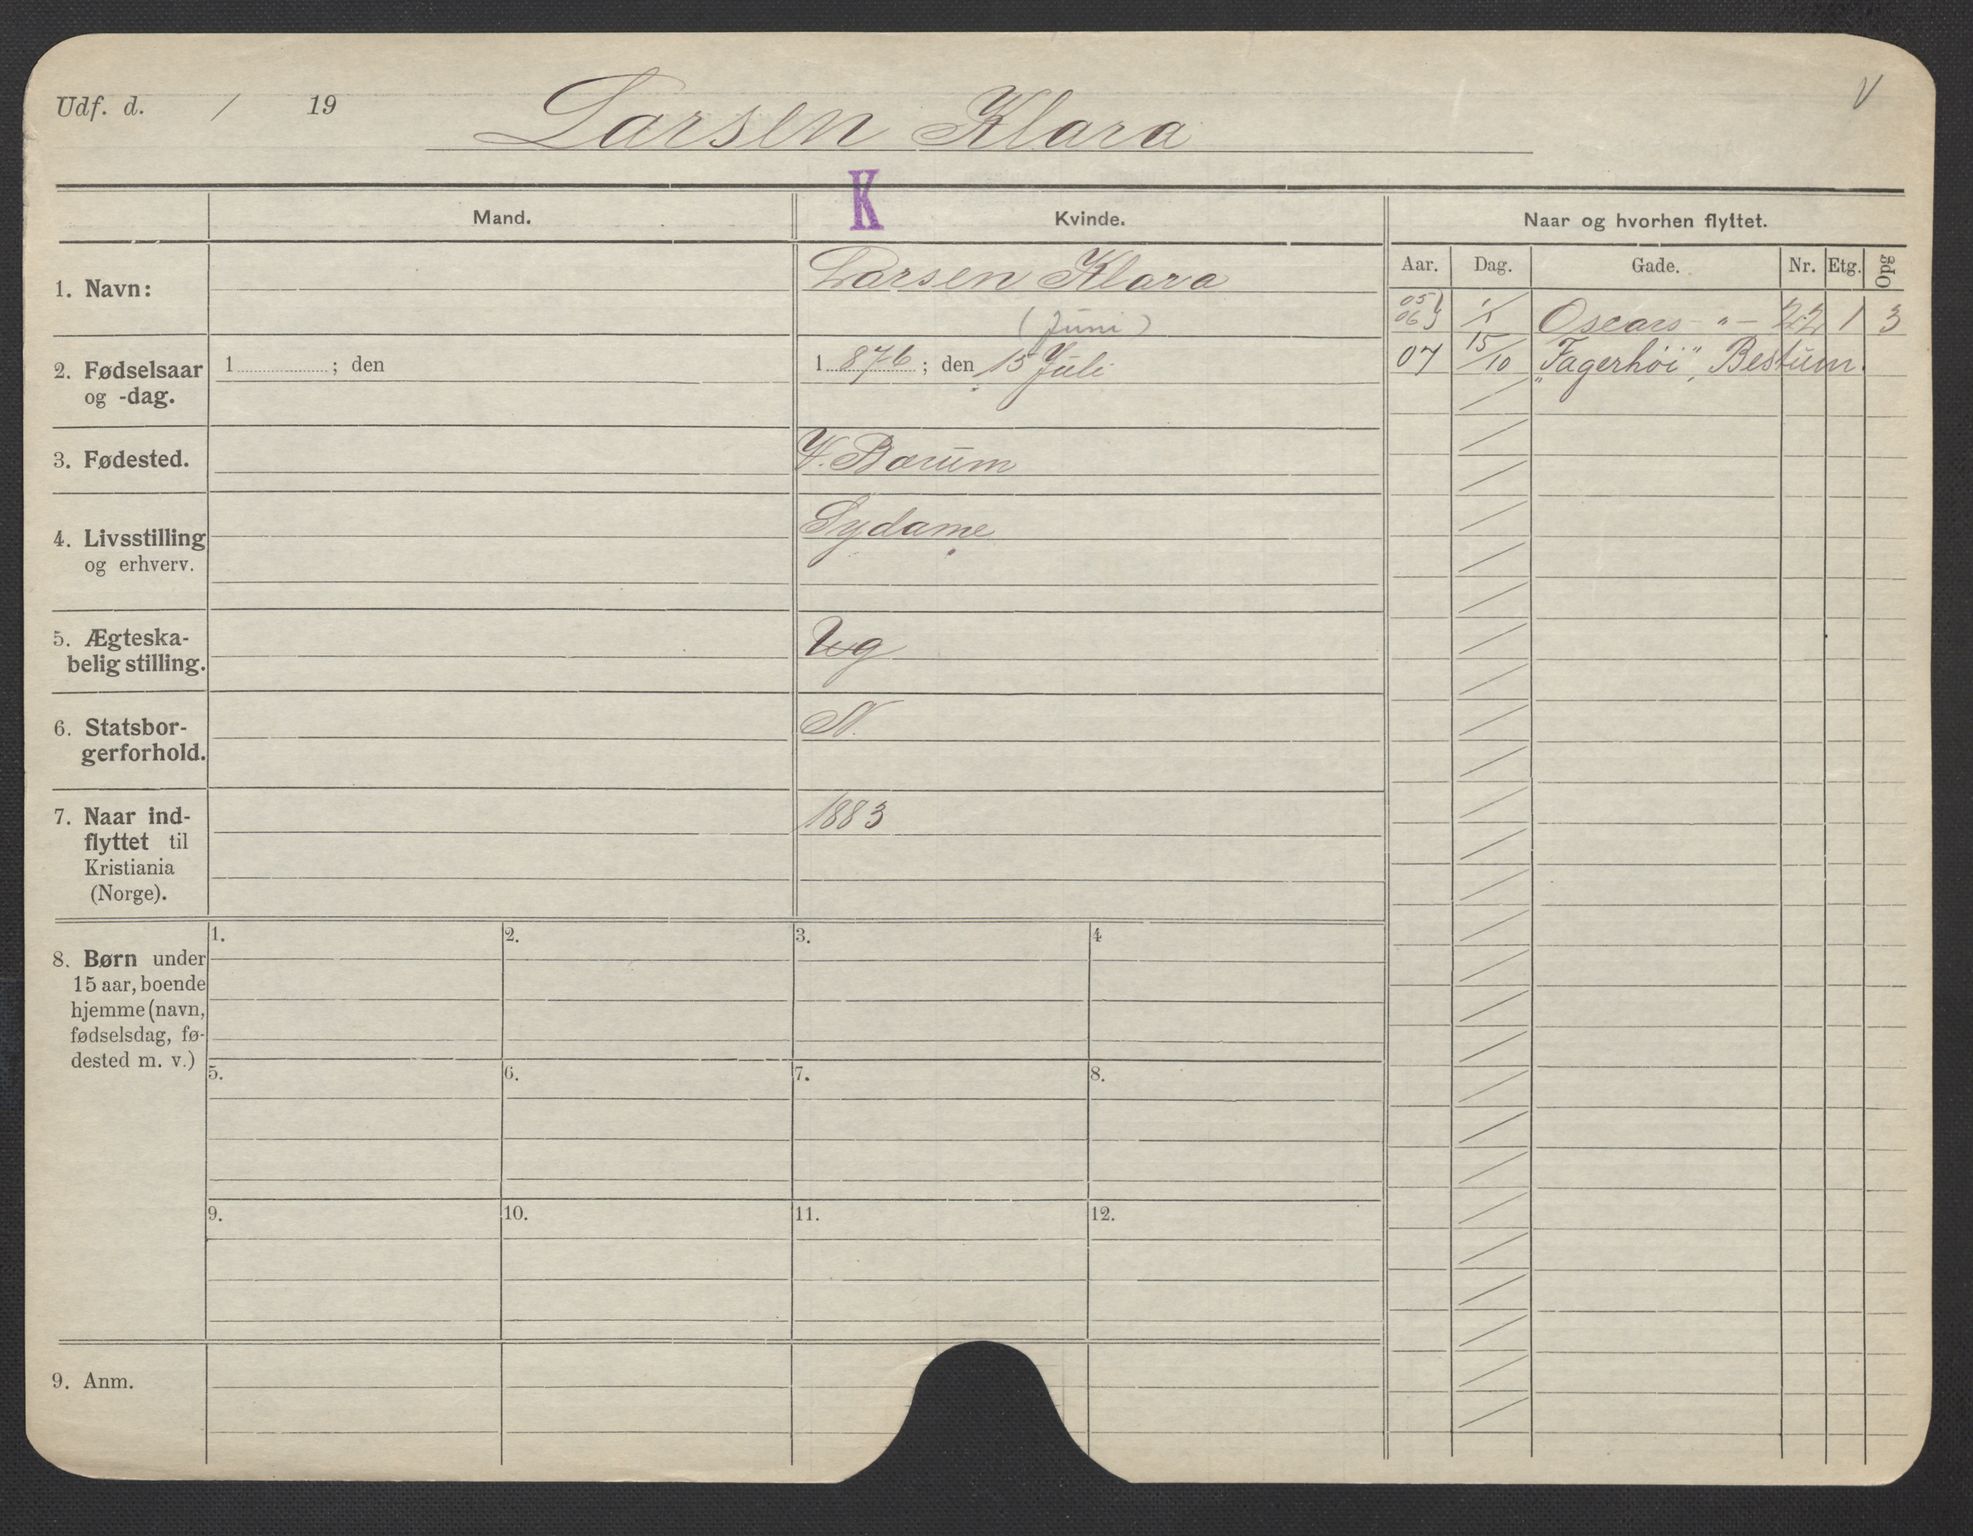 Udf. d. / 19
Larsen Klara
V
K
Mand.
Kvinde.
Naar og hvorhen flyttet.
Aar. Dag. Gade. Nr. Etg. Opg
1. Navn:
Larsen Klara
(Juni)
2. Fødselsaar
og -dag.
1 ; den
1 876 ; den 15 Juli
3. Fødested.
V. Bærum
4. Livsstilling
og erhverv.
Sydame
5. Ægteska-
belig stilling.
Ug
6. Statsbor-
gerforhold.
N.
7. Naar ind-
flyttet til
Kristiania
(Norge).
1883
05
06 Oscars -"- 22 1 3
07 15/10 "Fagerhöi", Bestum.
8. Børn under
15 aar, boende
hjemme (navn,
fødselsdag, fø-
dested m. v.)
1. 2. 3. 4
5. 6. 7. 8.
9. 10. 11. 12.
9. Anm.